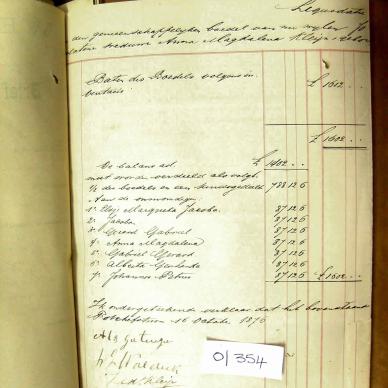 Liquidatie
den gemeenschappelijken boedel van nu wylen
weduwe Anna Magdalena Kleijn
Baten des Boedels volgens in-
ventaris £ 1602 . .
£ 1602 . .
De balans ad £ 1402 . .
moet worden verdeeld als volgt
½ de boedels en een kindsgedeelte 788 12 6
Aan de onmondigen
1e Margrieta Jacoba 87 12 6
2e Jacoba 87 12 6
3e Gerard Gabriel 87 12 6
4e Anna Magdalena 87 12 6
5e Gabriel Gerard 87 12 6
6e Alberta Gerharda 87 12 6
7e Johannes Petrus 87 12 6 £ 1602 . .
Ik ondergeteekende verklaar dat het bovenstaant
Potchefstroom 16 October 1876
Als getuige
0/354